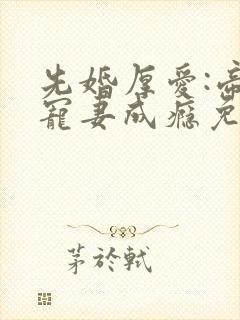 先婚厚爱:帝
宠妻成瘾免
茅於軾